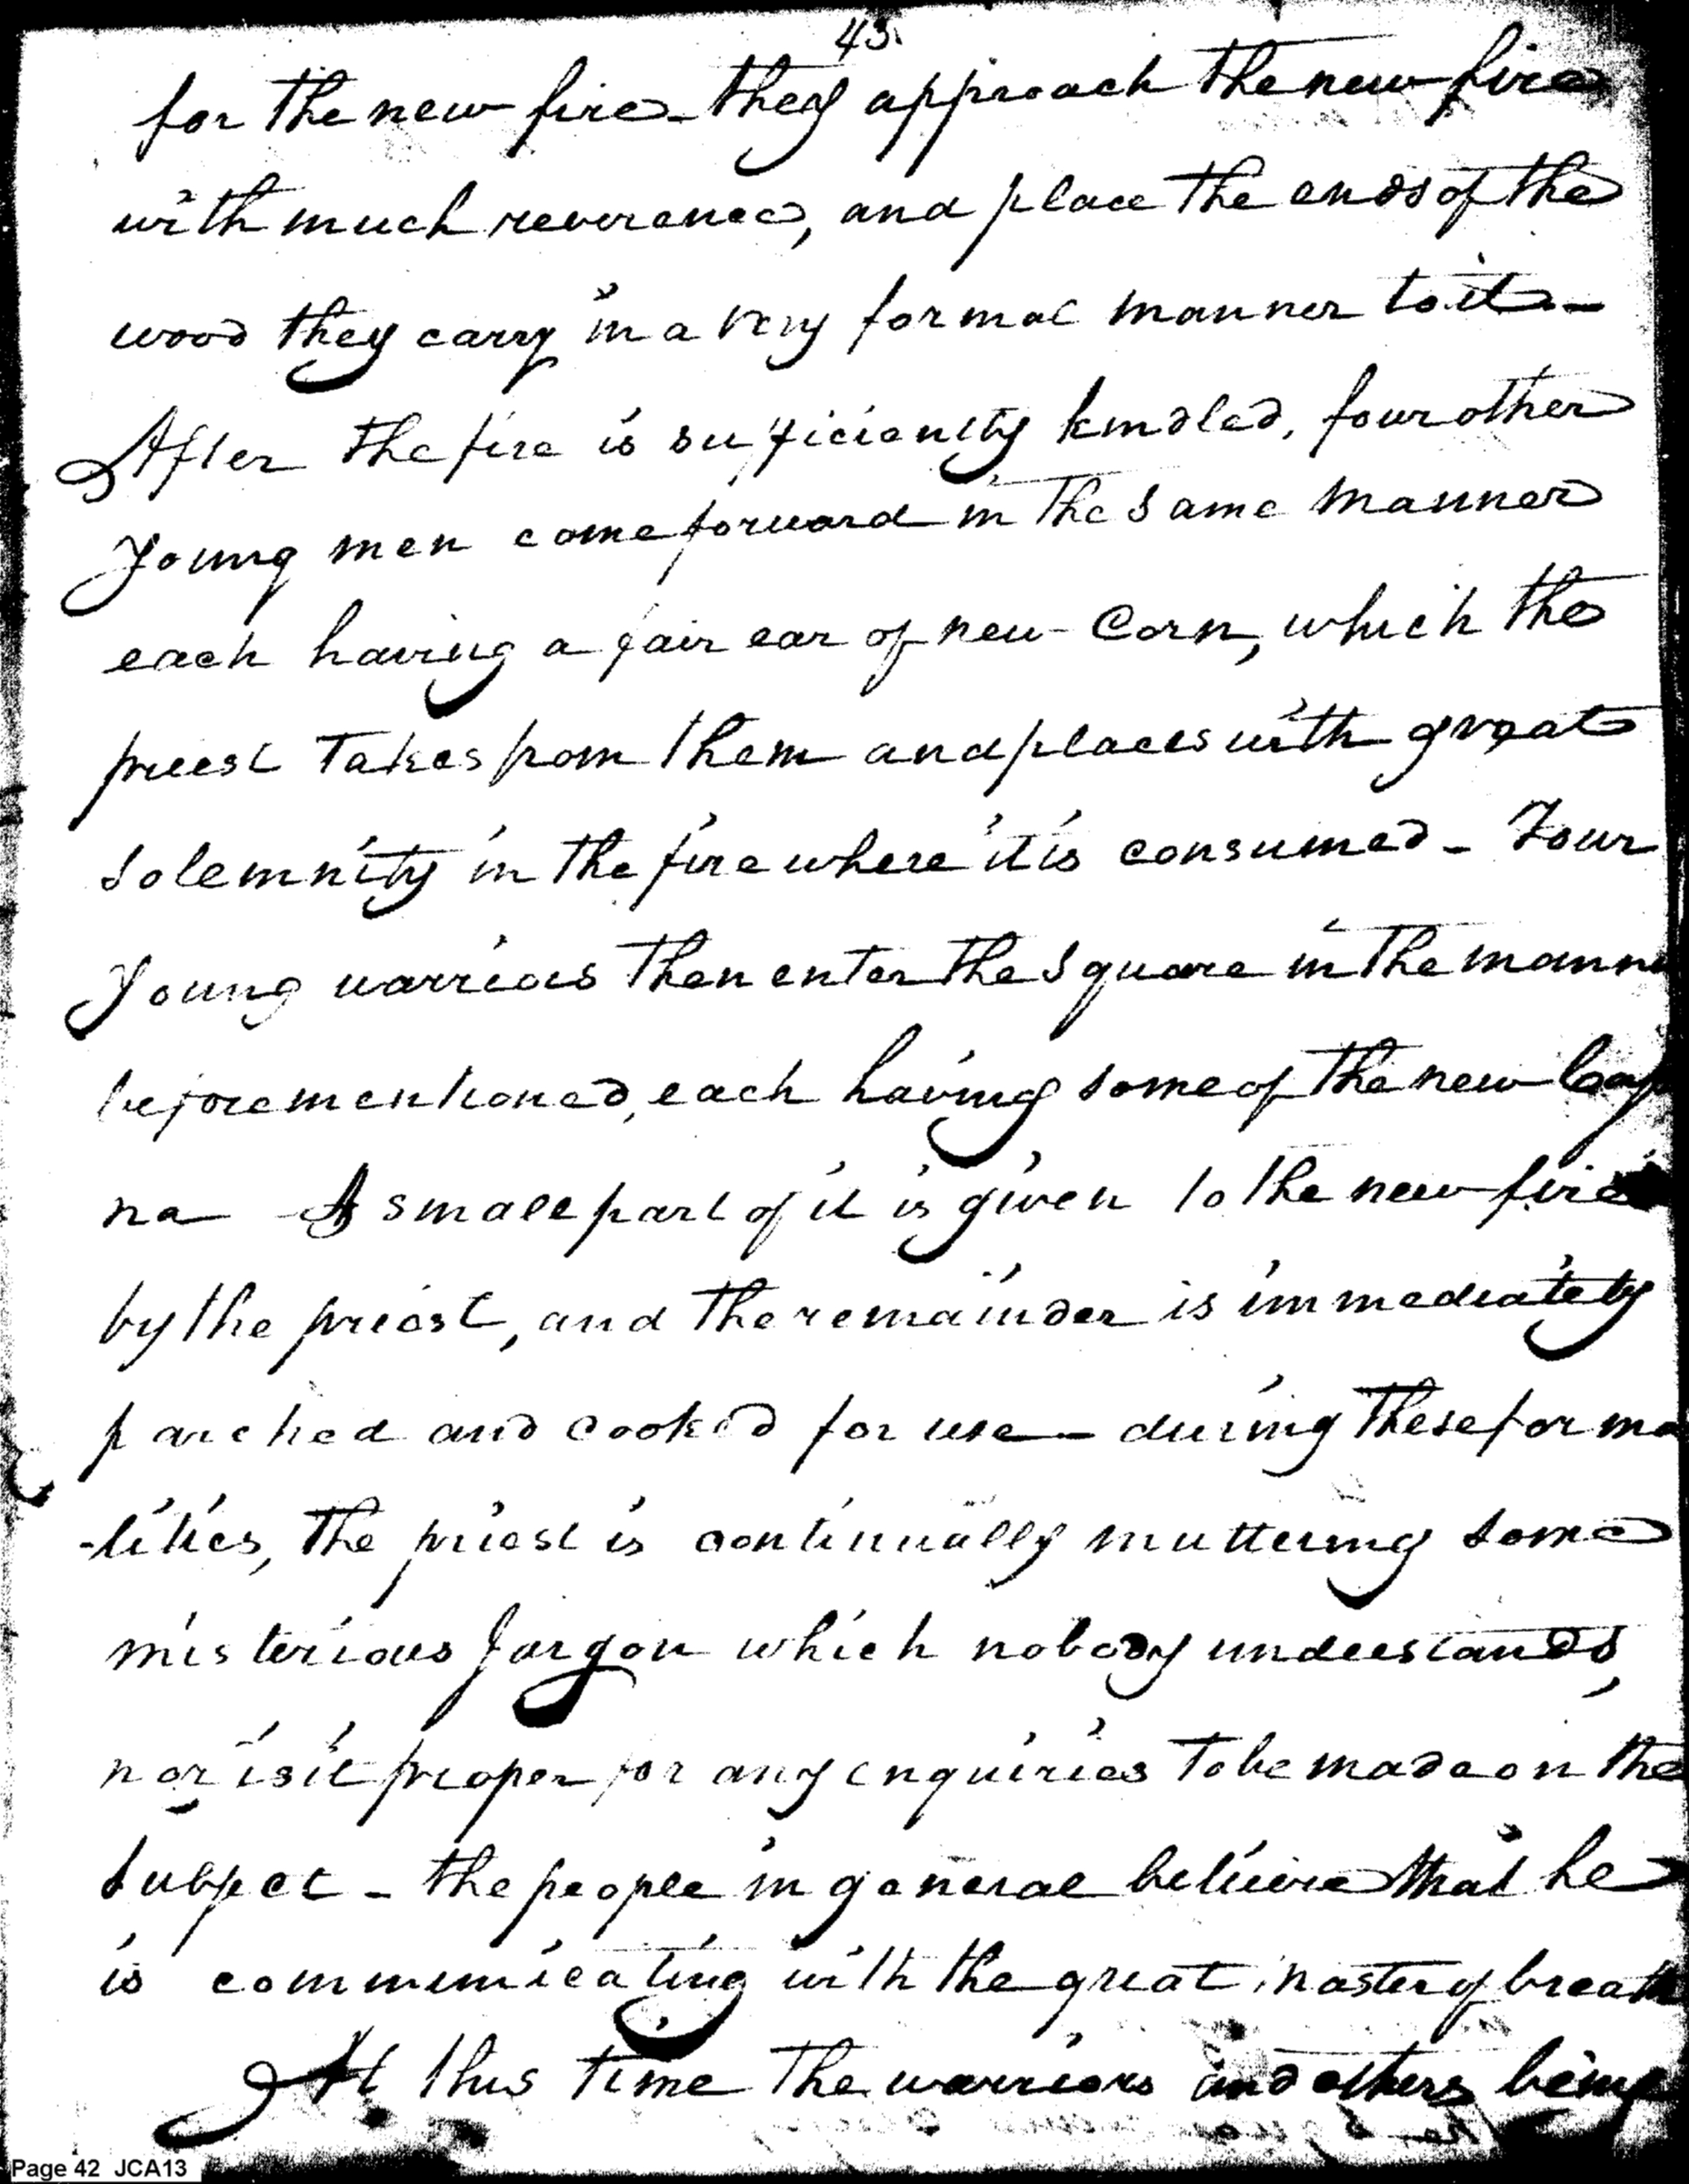 43.
for the new fire - they approach the new fire
with much reverence, and place the ends of the
wood they carry in a very formal manner to it -
After the fire is sufficiently kindled, four other
young men come forward in the same manner
each having a fair ear of new Corn, which the
priest takes from them and places with great
solemnity in the fire where it is consumed - Four
young warriors then enter the square in the manne
beforementioned, each having some of the new Casse
na - A small part of it is given to the new fire
by the priest, and the remainder is immediately
parched and cooked for use - during these forma
-lities, the priest is continually muttering some
misterious Jargon which nobody understands,
nor is it proper for any enquiries to be made on the
subject - the people in general believe that he
is communicating with the great master of breath
At this time the warriors and others being
Page 42 JCA13